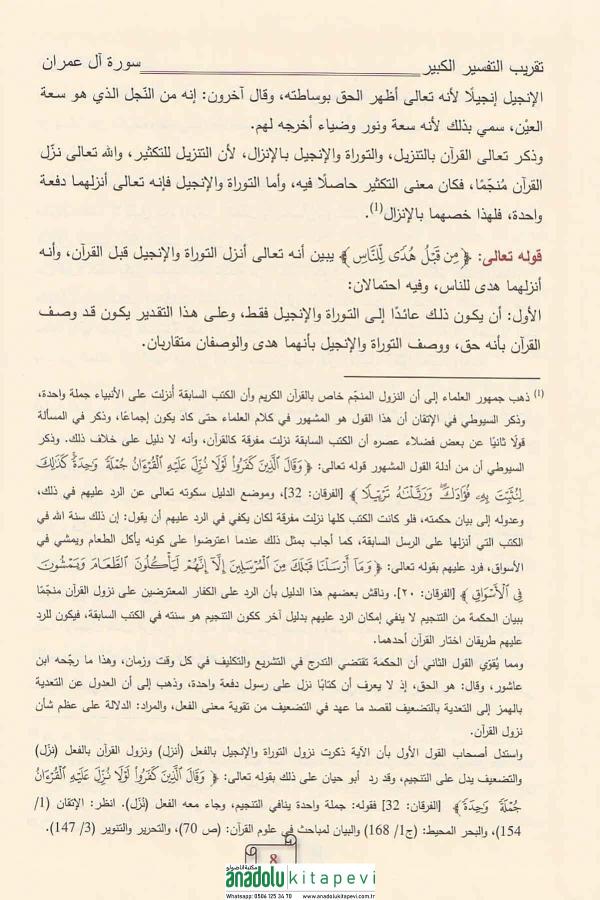 تقريب التفسير الكبير سورة آل عمران
الإنجيل إنجيلًا لأنه تعالى أظهر الحق بوساطته، وقال آخرون: إنه من النّجل الذي هو سعة
العيْن، سمي بذلك لأنه سعة ونور وضياء أخرجه لهم.
وذكر تعالى القرآن بالتنزيل، والتوراة والإنجيل بالإنزال، لأن التنزيل للتكثير، والله تعالى نزّل
القرآن مُنجّمًا، فكان معنى التكثير حاصلًا فيه، وأما التوراة والإنجيل فإنه تعالى أنزلهما دفعة
واحدة، فلهذا خصهما بالإنزال(1).
قوله تعالى: ﴿مِن قَبْلُ هُدًى لِّلنَّاسِ﴾ يبين أنه تعالى أنزل التوراة والإنجيل قبل القرآن، وأنه
أنزلهما هدى للناس، وفيه احتمالان:
الأول: أن يكون ذلك عائدًا إلى التوراة والإنجيل فقط، وعلى هذا التقدير يكون قد وصف
القرآن بأنه حق، ووصف التوراة والإنجيل بأنهما هدى والوصفان متقاربان.
(1) ذهب جمهور العلماء إلى أن النزول المنجّم خاص بالقرآن الكريم وأن الكتب السابقة أُنزلت على الأنبياء جملة واحدة،
وذكر السيوطي في الإتقان أن هذا القول هو المشهور في كلام العلماء حتى كاد يكون إجماعًا، وذكر في المسألة
قولًا ثانيًا عن بعض فضلاء عصره أن الكتب السابقة نزلت مفرقة كالقرآن، وأنه لا دليل على خلاف ذلك. وذكر
السيوطي أن من أدلة القول المشهور قوله تعالى: ﴿وَقَالَ ٱلَّذِينَ كَفَرُواْ لَوْلَا نُزِّلَ عَلَيْهِ ٱلْقُرْءَانُ جُمْلَةً وَٰحِدَةً ۚ كَذَٰلِكَ
لِنُثَبِّتَ بِهِۦ فُؤَادَكَ ۖ وَرَتَّلْنَٰهُ تَرْتِيلًا﴾ [الفرقان: 32]، وموضع الدليل سكوته تعالى عن الرد عليهم في ذلك،
وعدوله إلى بيان حكمته، فلو كانت الكتب كلها نزلت مفرقة لكان يكفي في الرد عليهم أن يقول: إن ذلك سنة الله في
الكتب التي أنزلها على الرسل السابقة، كما أجاب بمثل ذلك عندما اعترضوا على كونه يأكل الطعام ويمشي في
الأسواق، فرد عليهم بقوله تعالى: ﴿وَمَآ أَرْسَلْنَا قَبْلَكَ مِنَ ٱلْمُرْسَلِينَ إِلَّآ إِنَّهُمْ لَيَأْكُلُونَ ٱلطَّعَامَ وَيَمْشُونَ
فِى ٱلْأَسْوَاقِ﴾ [الفرقان: ٢٠]. وناقش بعضهم هذا الدليل بأن الرد على الكفار المعترضين على نزول القرآن منجمًا
ببيان الحكمة من التنجيم لا ينفي إمكان الرد عليهم بدليل آخر ككون التنجيم هو سنته في الكتب السابقة، فيكون للرد
عليهم طريقان اختار القرآن أحدهما.
ومما يُقوّي القول الثاني أن الحكمة تقتضي التدرج في التشريع والتكليف في كل وقت وزمان، وهذا ما رجّحه ابن
عاشور، وقال: هو الحق، إذ لا يعرف أن كتابًا نزل على رسول دفعة واحدة، وذهب إلى أن العدول عن التعدية
بالهمز إلى التعدية بالتضعيف لقصد ما عهد في التضعيف من تقوية معنى الفعل، والمراد: الدلالة على عظم شأن
نزول القرآن.
واستدل أصحاب القول الأول بأن الآية ذكرت نزول التوراة والإنجيل بالفعل (أنزل) ونزول القرآن بالفعل (نزّل)
والتضعيف يدل على التنجيم، وقد رد أبو حيان على ذلك بقوله تعالى: ﴿وَقَالَ ٱلَّذِينَ كَفَرُواْ لَوْلَا نُزِّلَ عَلَيْهِ ٱلْقُرْءَانُ
جُمْلَةً وَٰحِدَةً﴾ [الفرقان: 32] فقوله: جملة واحدة ينافي التنجيم، وجاء معه الفعل (نُزّل). انظر: الإتقان (1/
154)، والبحر المحيط: (ج1/ 168) والبيان لمباحث في علوم القرآن: (ص 70)، والتحرير والتنوير (3/ 147).
8
مكتبة اناضولو
anadolu kitapevi
Whatsapp: 0506 125 34 70 www.anadolukitapevi.com.tr